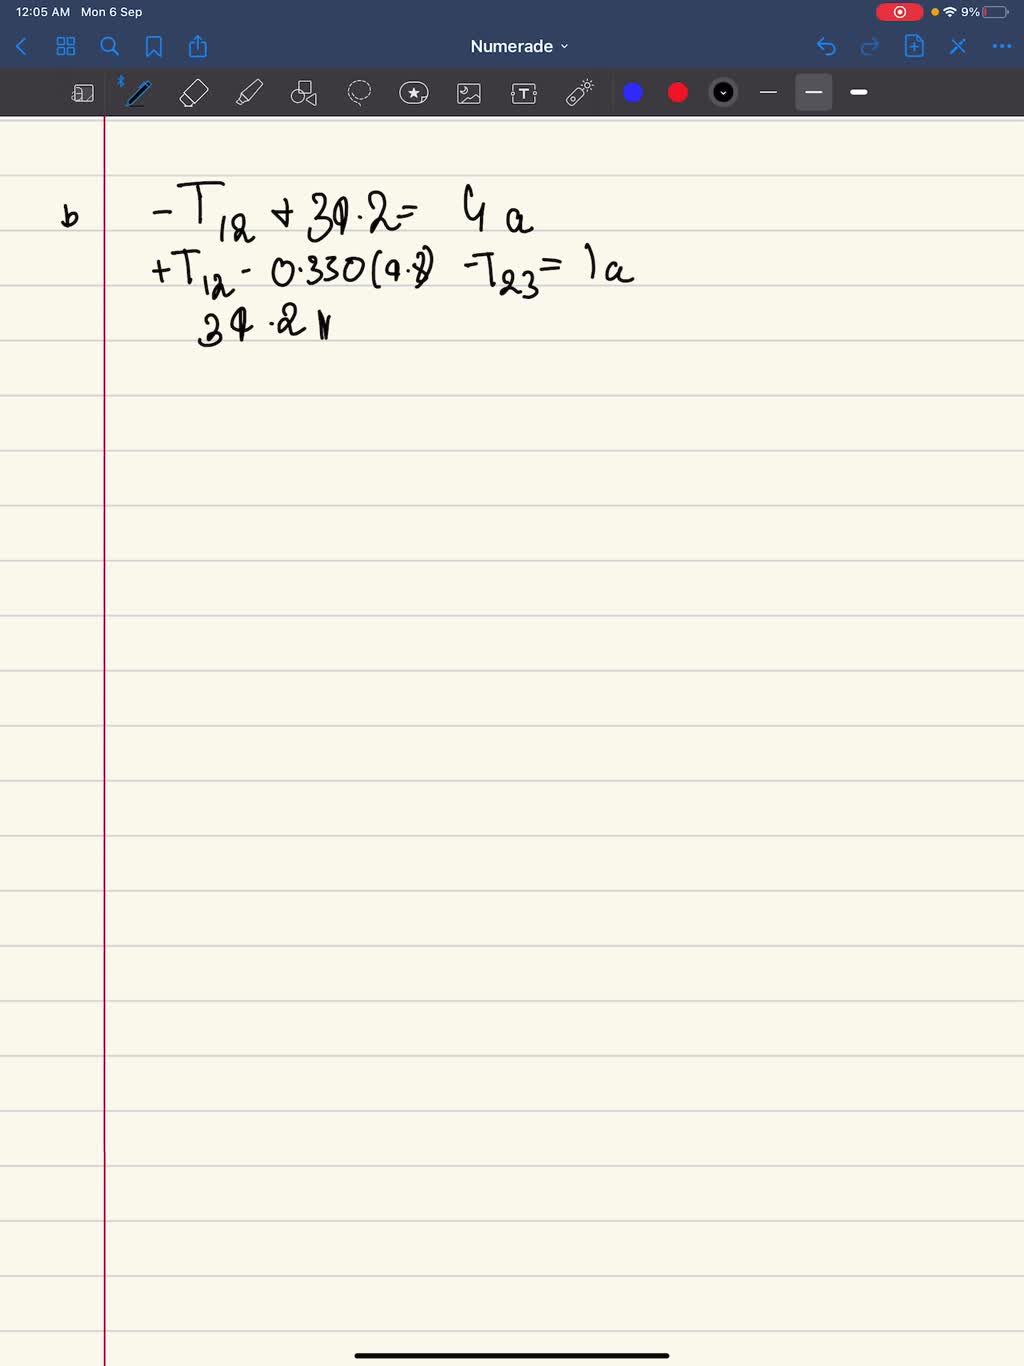 12:05 AM Mon 6 Sep 9%
Numerade
b -T12 + 39.2 = 4a
+T12 - 0.330(9.8) -T23 = 1a
39.2 N